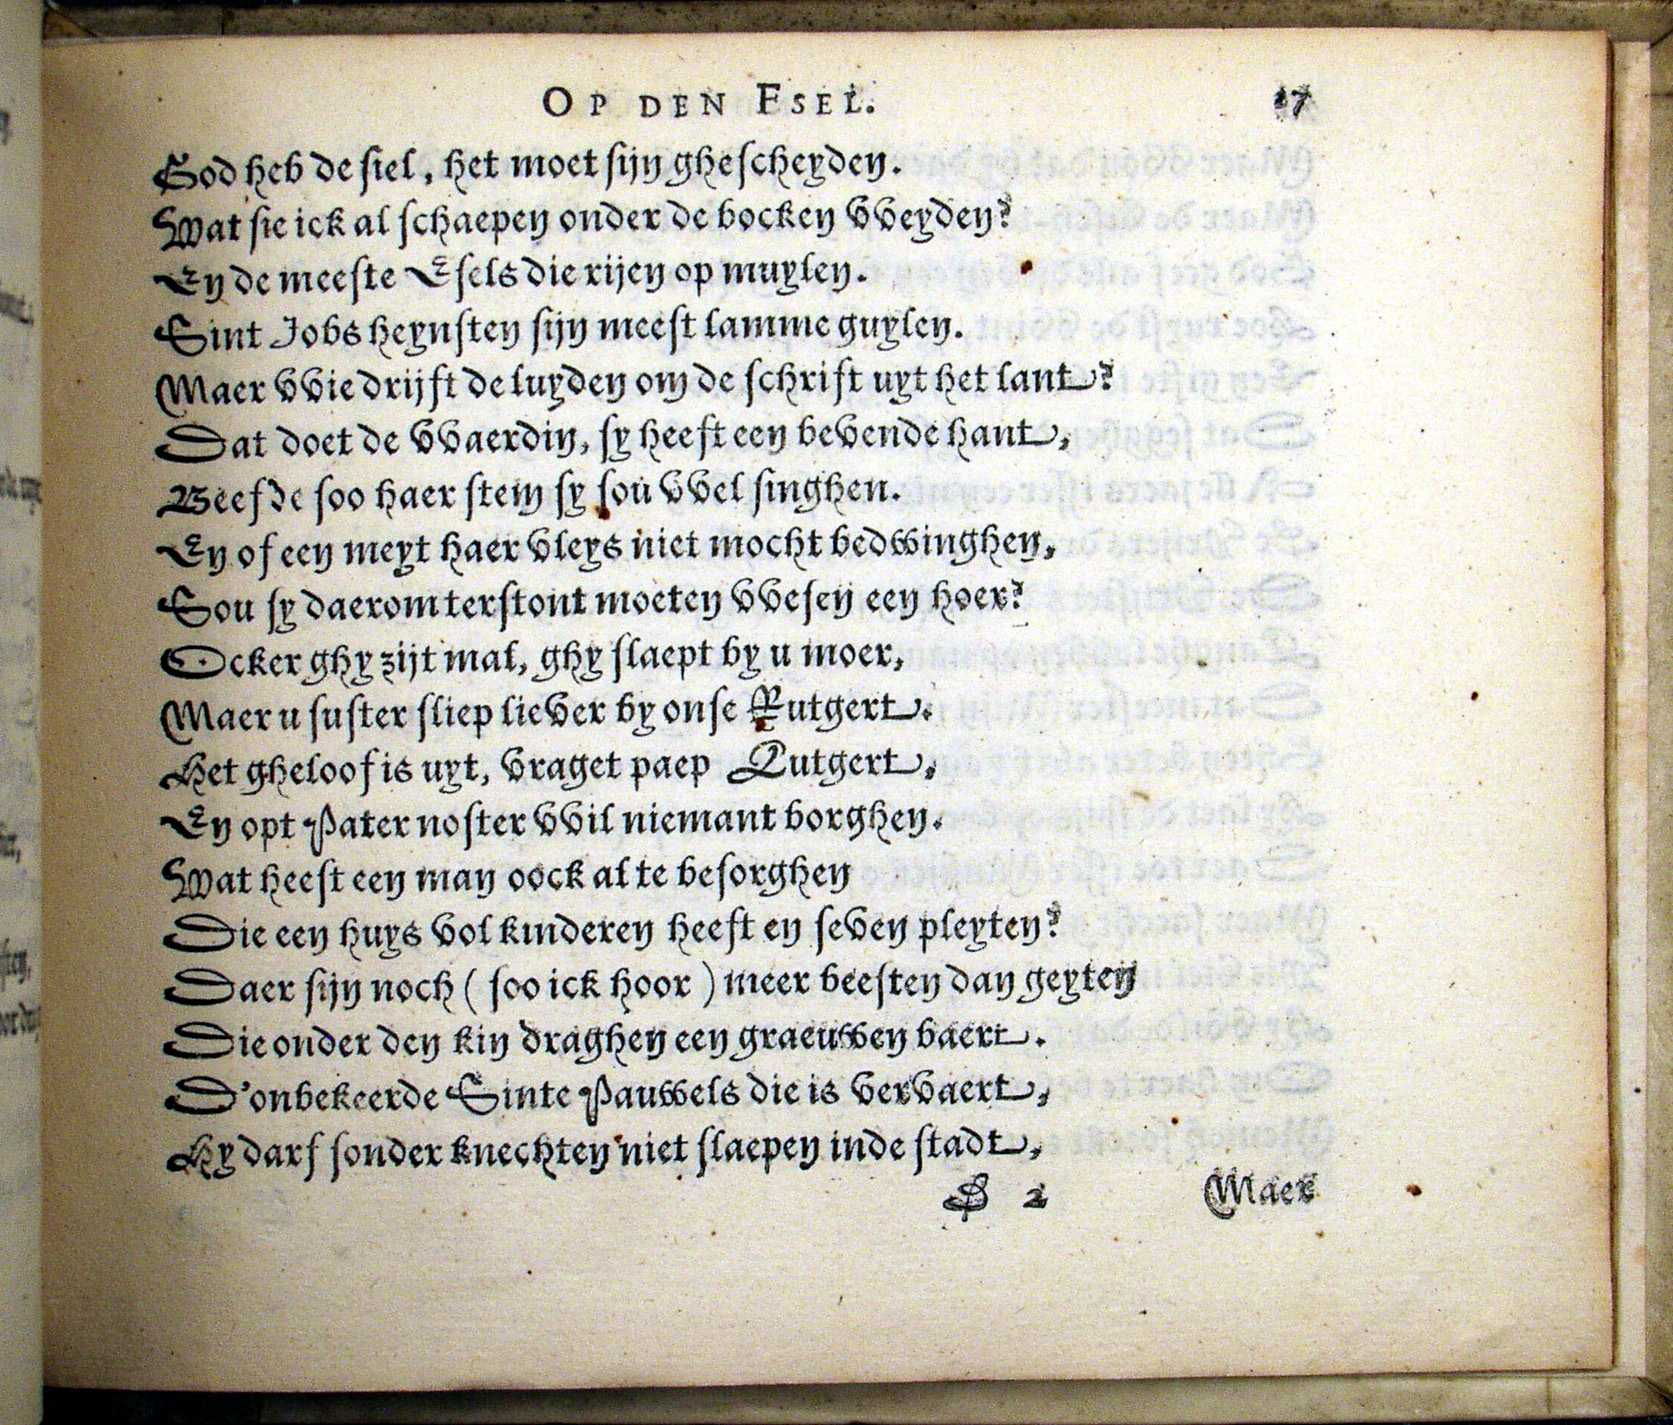 OP DEN ESEL. 17
God heb de siel, het moet sijn ghescheyden.
Wat sie ick al schaepen onder de bocken vveyden?
En de meeste Esels die rijen op muylen.
Sint Jobs heynsten sijn meest lamme guylen.
Maer vvie drijft de luyden om de schrift uyt het lant?
Dat doet de vvaerdin, sy heeft een bevende hant,
Beefde soo haer stem sy sou vvel singhen.
En of een meyt haer vleys niet mocht bedwinghen,
Sou sy daerom terstont moeten vvesen een hoer?
Ocker ghy zijt mal, ghy slaept by u moer,
Maer u suster sliep liever by onse Rutgert.
Het gheloof is uyt, vraget paep Lutgert,
En opt Pater noster vvil niemant borghen.
Wat heeft een man oock al te besorghen
Die een huys vol kinderen heeft en seven pleyten?
Daer sijn noch ( soo ick hoor ) meer beesten dan geyten
Die onder den kin draghen een graeuwen baert.
D'onbekeerde Sinte Pauwels die is vervaert,
Hy darf sonder knechten niet slaepen inde stadt,
2 Maer